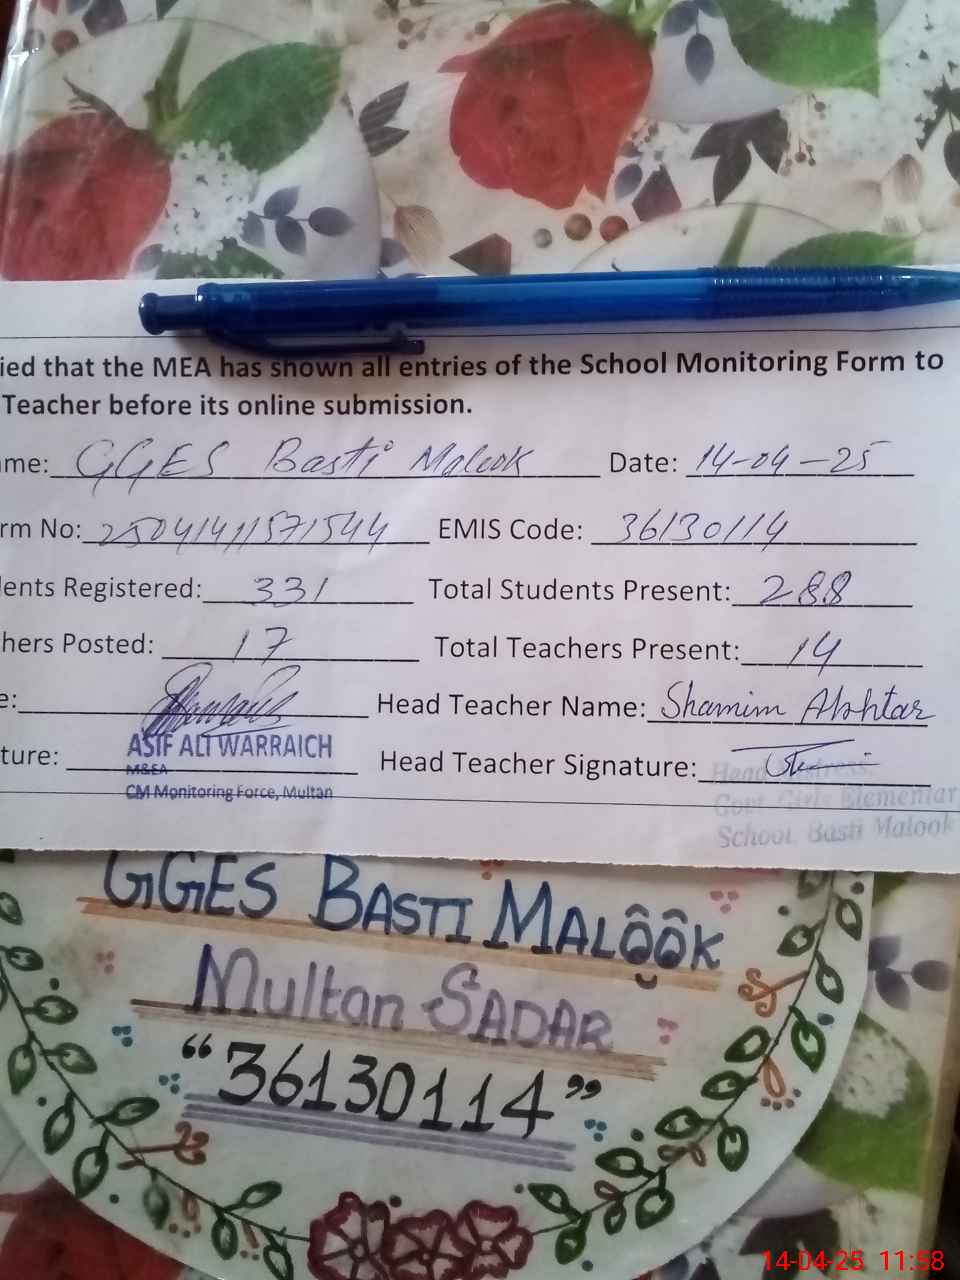 ied that the MEA has shown all entries of the School Monitoring Form to
Teacher before its online submission.
ame: GGES Basti Malook Date: 14-04-25
rm No: 25041411571544 EMIS Code: 36130114
ents Registered: 331 Total Students Present: 288
hers Posted: 17 Total Teachers Present: 14
e: Head Teacher Name: Shamim Akhtar
ture: Head Teacher Signature:
ASIF ALI WARRAICH
M&EA
CM Monitoring Force, Multan
Head Mistress
Govt. Girls Elementar
School Basti Malook
GGES BASTI MALOOK
Multan SADAR
"36130114"
14-04-25 11:58